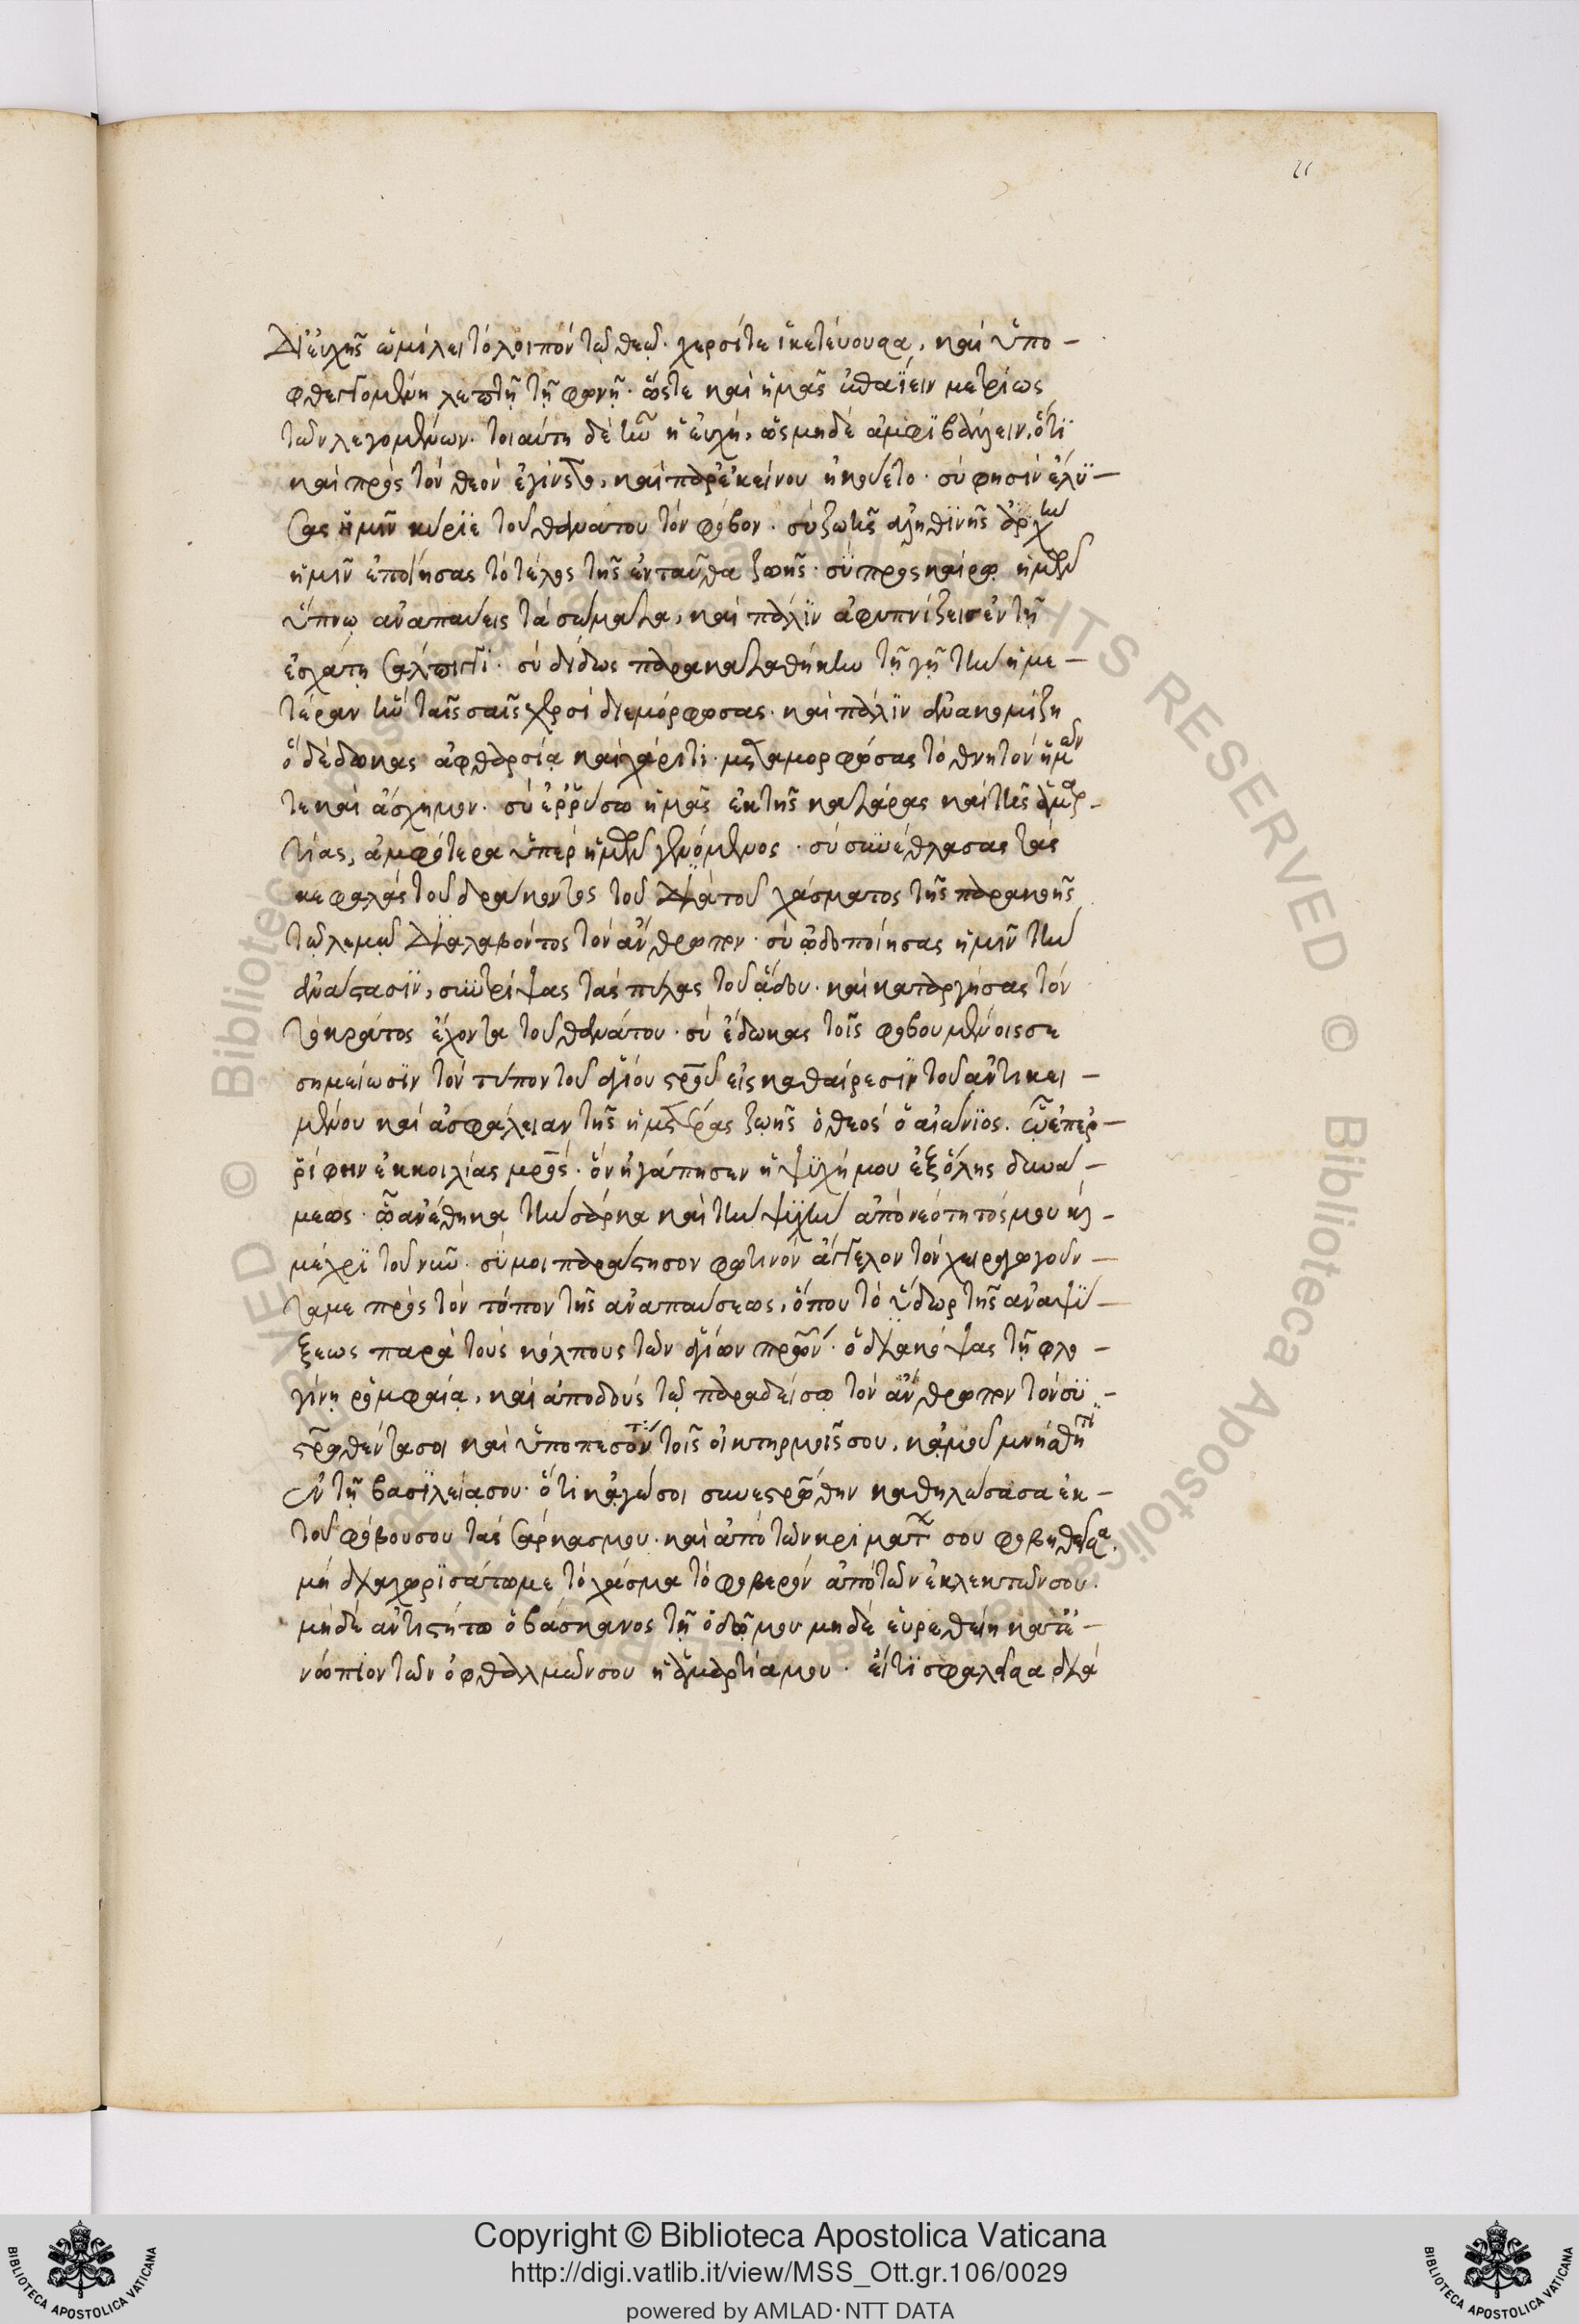 21
Δι' εὐχῆς ὡμίλει τὸ λοιπὸν τῷ θεῷ· χερσί τε ἱκετεύουσα, καὶ ὑπο-
φθεγγομένη λεπτῇ τῇ φωνῇ· ὥστε καὶ ἡμᾶς ἐπαΐειν μετρίως
τῶν λεγομένων. τοιαύτη δὲ ἦν ἡ εὐχή, ὡς μηδὲ ἀμφιβάλλειν, ὅτι
καὶ πρὸς τὸν θεὸν ἐγίνετο, καὶ παρ' ἐκείνου ἠκούετο· σύ φησιν ἔλυ-
σας ἡμῖν κύριε τοῦ θανάτου τὸν φόβον· σὺ ζωῆς ἀληθινῆς ἀρχὴν
ἡμῖν ἐποίησας τὸ τέλος τῆς ἐνταῦθα ζωῆς· σὺ πρὸς καιρῷ ἡμῶν
ὕπνῳ ἀναπαύεις τὰ σώματα, καὶ πάλιν ἀφυπνίζεις ἐν τῇ
ἐσχάτῃ σάλπιγγι· σὺ δίδως παρακαταθήκην τῇ γῇ τὴν ἡμε-
τέραν ἣν ταῖς σαῖς χερσὶ διεμόρφωσας· καὶ πάλιν ἀνακομίζῃ
ὃ δέδωκας ἀφθαρσίᾳ καὶ χάριτι· μεταμορφώσας τὸ θνητὸν ἡμῶν
τε καὶ ἄσχημον· σὺ ἐρρύσω ἡμᾶς ἐκ τῆς κατάρας καὶ τῆς ἁμαρ-
τίας, ἀμφότερα ὑπὲρ ἡμῶν γενόμενος· σὺ συνέθλασας τὰς
κεφαλὰς τοῦ δράκοντος τοῦ διὰ τοῦ χάσματος τῆς παρακοῆς
τῷ λαιμῷ διαλαβόντος τὸν ἄνθρωπον· σὺ ὡδοποίησας ἡμῖν τὴν
ἀνάστασιν, συντρίψας τὰς πύλας τοῦ ᾅδου· καὶ καταργήσας τὸν
τὸ κράτος ἔχοντα τοῦ θανάτου· σὺ ἔδωκας τοῖς φοβουμένοις σε
σημείωσιν τὸν τύπον τοῦ ἁγίου στροῦ εἰς καθαίρεσιν τοῦ ἀντικει-
μένου καὶ ἀσφάλειαν τῆς ἡμετέρας ζωῆς ὁ θεὸς ὁ αἰώνιος. ᾧ ἐπερ-
ρίφην ἐκ κοιλίας μρς· ὃν ἠγάπησεν ἡ ψυχή μου ἐξ ὅλης δυνά-
μεως· ᾧ ἀνέθηκα τὴν σάρκα καὶ τὴν ψυχὴν ἀπὸ νεότητός μου καὶ
μέχρι τοῦ νῦν· σύ μοι παράστησον φωτινὸν ἄγγελον τὸν χειραγωγοῦν-
τα με πρὸς τὸν τόπον τῆς ἀναπαύσεως, ὅπου τὸ ὕδωρ τῆς ἀναψύ-
ξεως παρὰ τοὺς κόλπους τῶν ἁγίων πρων· ὁ διακόψας τῇ φλο-
γίνῃ ῥομφαίᾳ, καὶ ἀποδοὺς τῷ παραδείσῳ τὸν ἄνθρωπον τὸν συ-
στρωθέντα σοι καὶ ὑποπεσόντα τοῖς οἰκτιρμοῖς σου, κἀμοῦ μνήσθητι
ἐν τῇ βασιλείᾳ σου· ὅτι κἀγώ σοι συνεστρώθην καθηλώσασα ἐκ
τοῦ φόβου σου τὰς σάρκας μου· καὶ ἀπὸ τῶν κριμάτων σου φοβηθεῖσα.
μὴ διαχωρισάτω με τὸ χάσμα τὸ φοβερὸν ἀπὸ τῶν ἐκλεκτῶν σου.
μηδὲ ἀντιστήτω ὁ βάσκανος τῇ ὁδῷ μου μηδὲ εὑρεθείη κατε-
νώπιον τῶν ὀφθαλμῶν σου ἡ ἁμαρτία μου· εἴ τι σφαλεῖσα διὰ
Copyright © Biblioteca Apostolica Vaticana
http://digi.vatlib.it/view/MSS_Ott.gr.106/0029
powered by AMLAD·NTT DATA
BIBLIOTECA APOSTOLICA VATICANA
BIBLIOTECA APOSTOLICA VATICANA